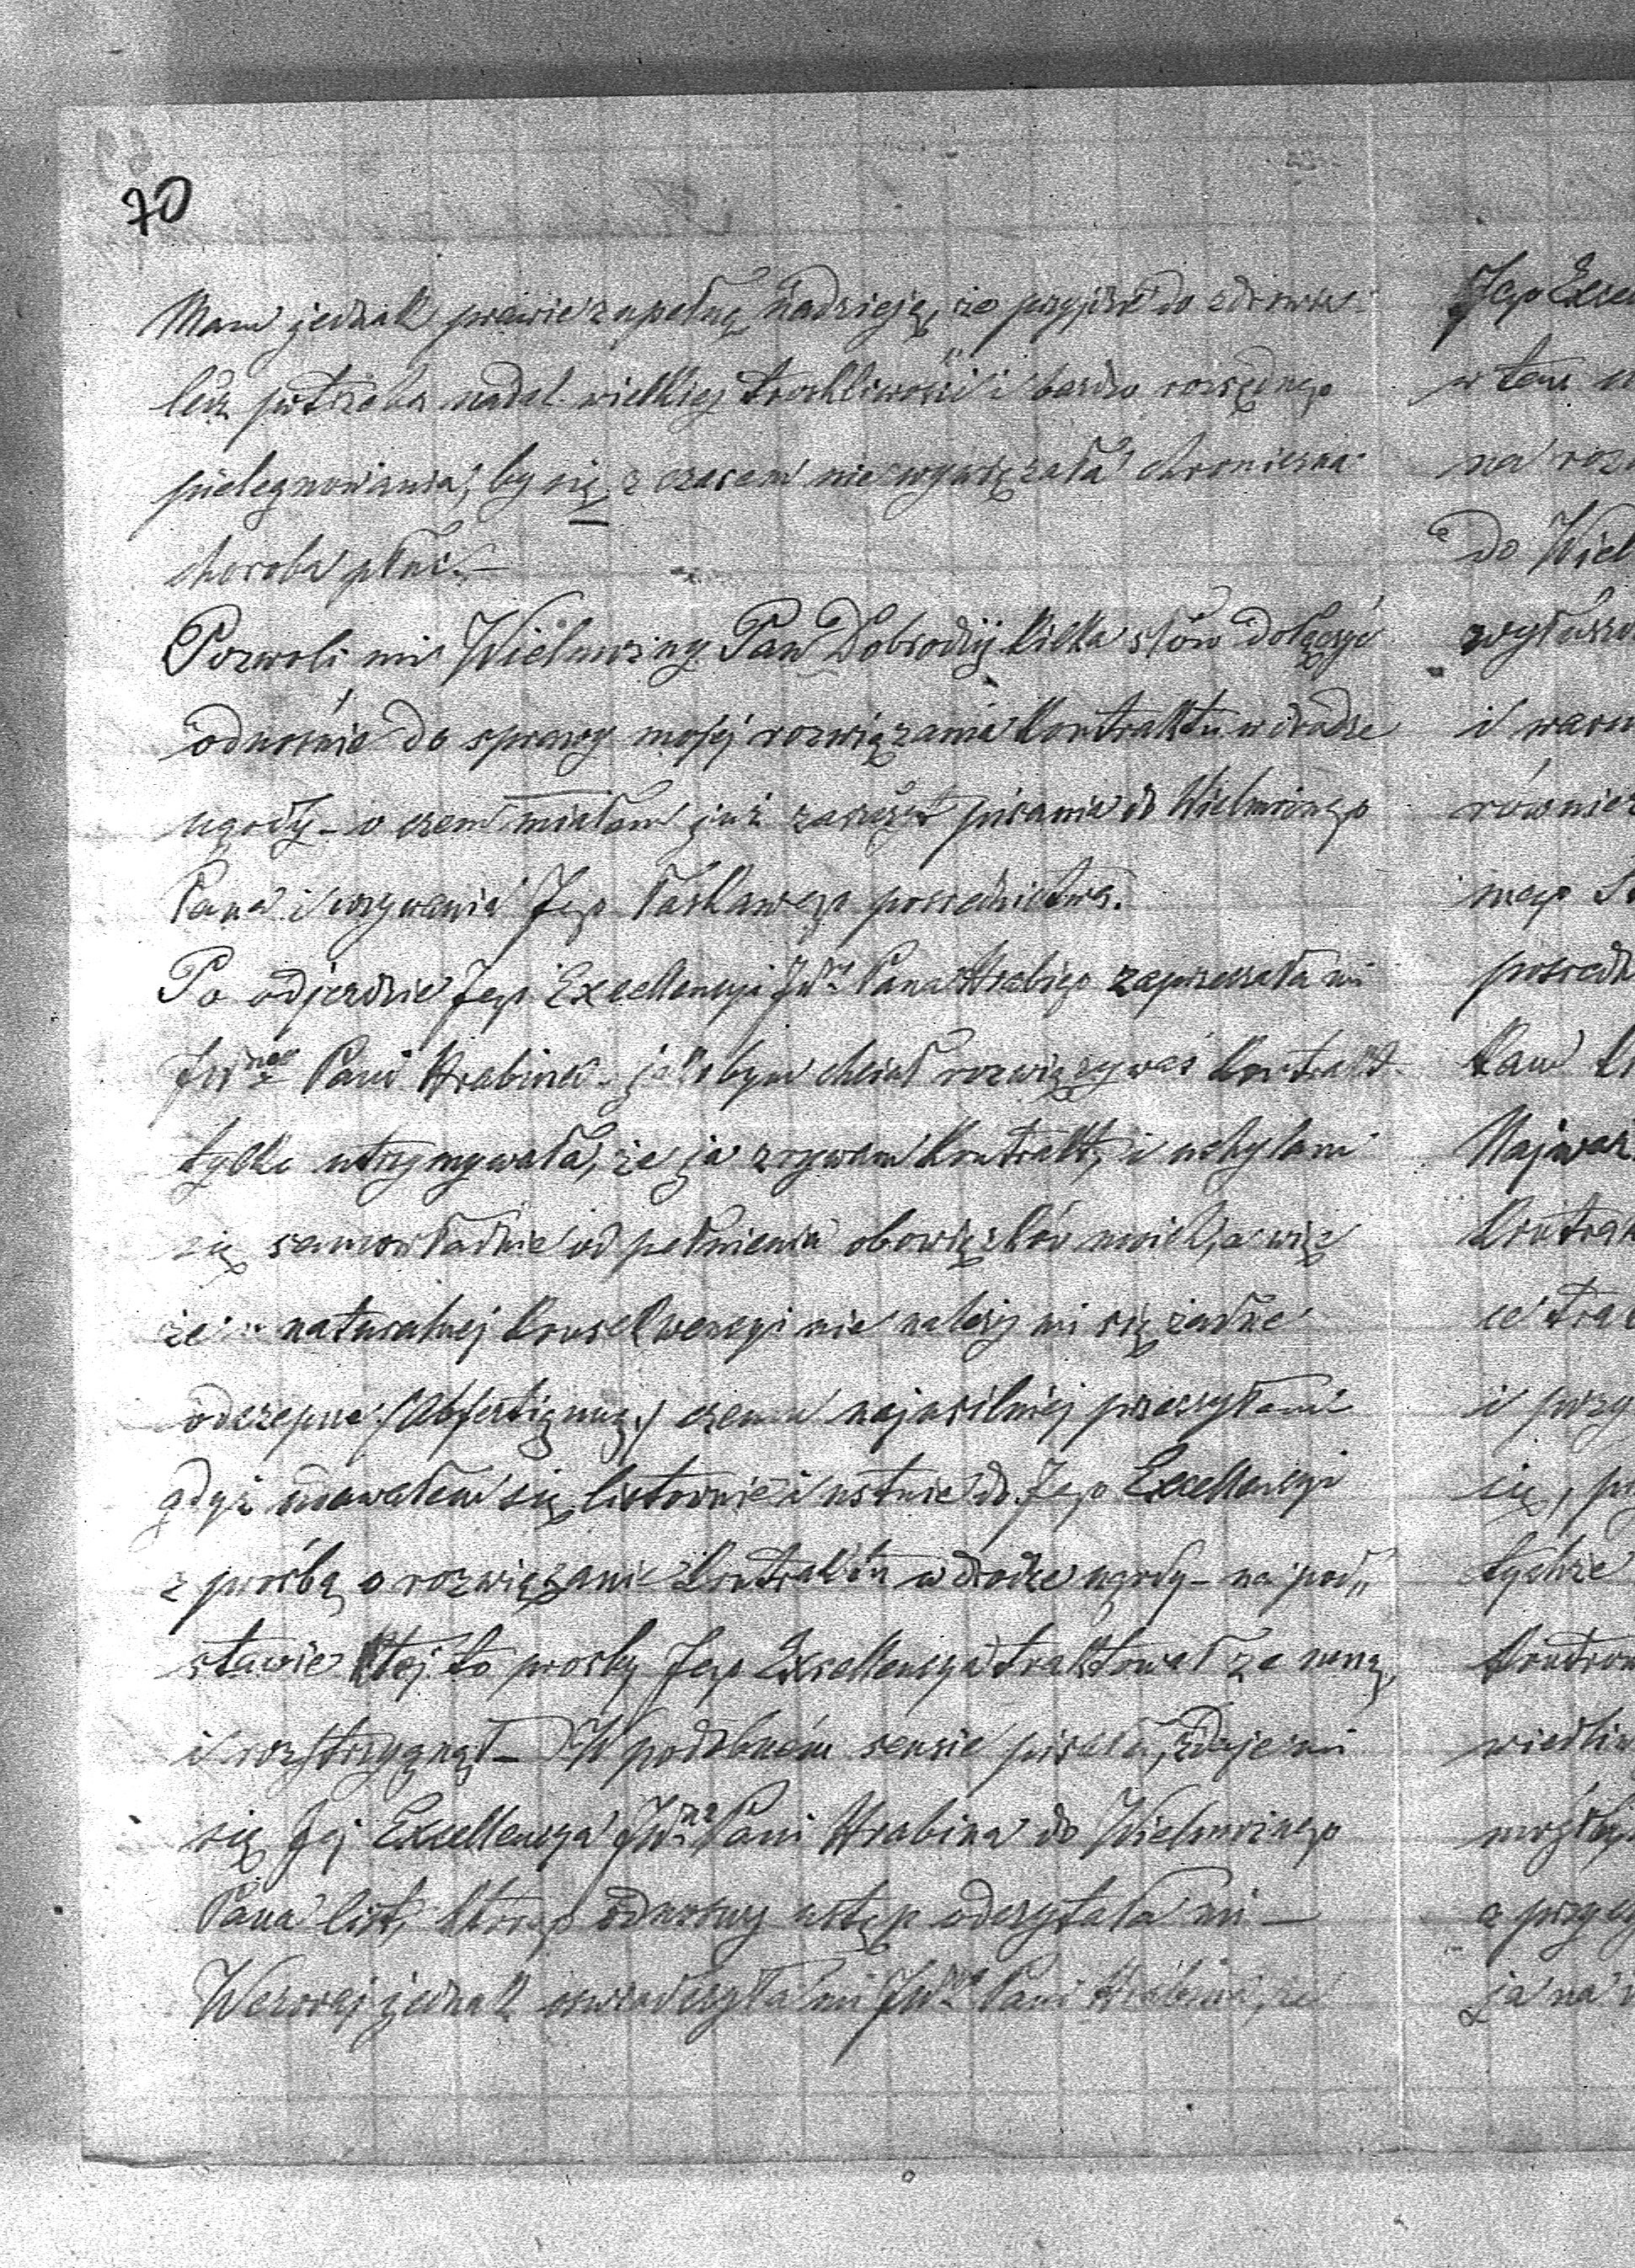 70
Mam jednak prawie zupełną nadzieję, że przyjdzie do zdrowia
lecz potrzeba nadal wielkiej troskliwości i bardzo rozsądnego
pielęgnowania, by się z czasem nie wywiązała chroniczna
choroba płuc.—
Pozwoli mi Wielmożny Pan Dobrodziej kilka słów dołączyć
odnośnie do sprawy mojej rozwiązania kontraktu w drodze
ugody – o czem miałem już zaszczyt pisania do Wielmożnego
Pana i wzywania Jego łaskawego pośrednictwa.
Po odjeździe Jego Excellencyi JW. Pana Hrabiego zaprzeczała mi
JWna Pani Hrabina – jakobym chciał rozwiązywać kontrakt
tylko utrzymywała, że ja zrywam kontrakt, i uchylam
się samowładnie od pełnienia obowiązków moich, a więc
że naturalnej konsekwencyi nie należy mi się żadne
odczepne (Abfertigung) czemu najusilniej przeczyłam
gdyż udawałem się listownie i ustnie do Jego Excellencyi
z prośbą o rozwiązanie kontraktu w drodze ugody – na pod„
stawie tej to prośby Jego Excellencya traktował ze mną,
i rozstrzygnął – W podobném sensie pisała, zdaje mi
się Jej Excellencya JWna Pani Hrabina do Wielmożnego
Pana list, którego odnośny ustęp odczytała mi —
Wczoraj jednak oświadczyła mi JWna Pani Hrabina, że
Jego Exce
w tem
na roz
do Wiel
wyłuszcz
i waru
również
mego
pośredn
tam
Najważ
kontrak
ce tra
i przy
się, prz
tychże
kontra
wiedliw
mógłby
a przy
ja na